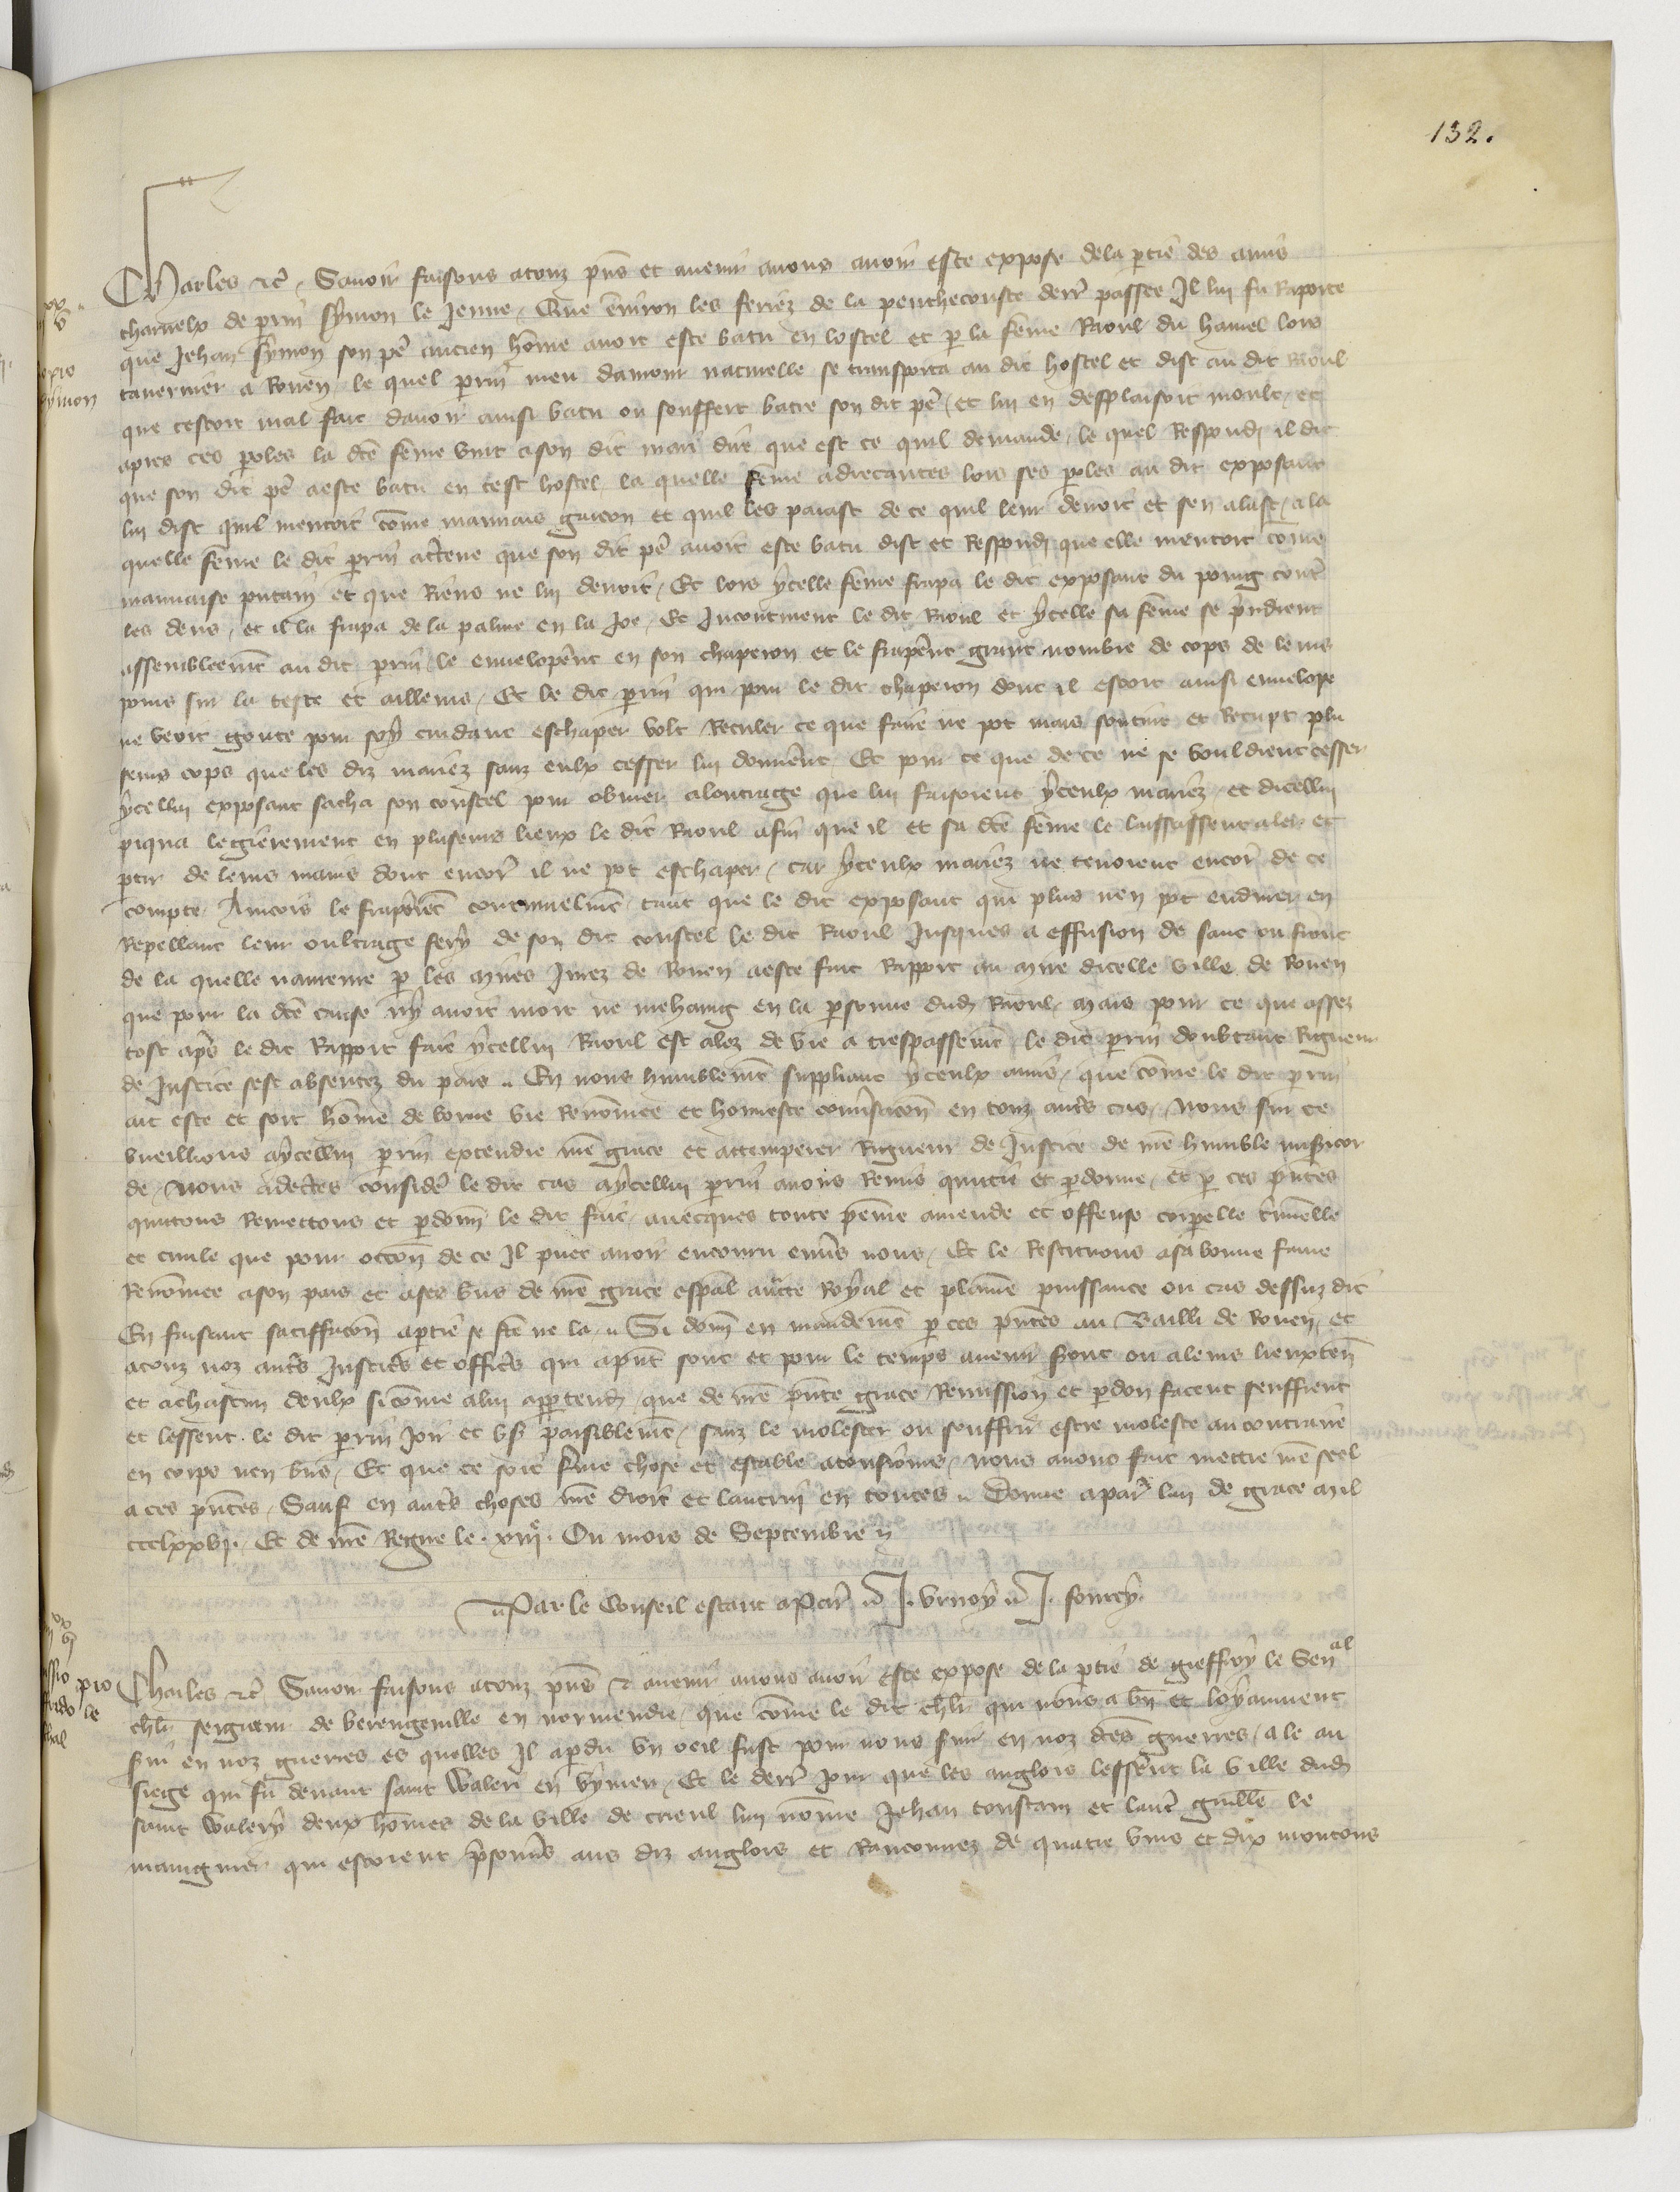 132.
Charles etc. Savoir faisons a touz pñs et avenir avons avoir este expose de la ptie des amis
charnelx de prin Symon le Jenne, Que environ les feriez de la penthecouste derr passee Il lui fu Raporte
que Jehan Symon son pe ancien home avoit este batu en lostel et p la feme Raoul du hamel lors
tavernier a Rouen le quel prin meu damour naturelle se transporta au dit hostel et dist au dit Raoul
que cestoit mal fait davoir ainsi batu ou souffert batre son dit pe, et lui en desplaisoit moult, et
apres ces poles la dce feme vint a son dit mari dire que est ce quil demande, le quel Respond il dit
que son dit pe a este batu en cest hostel, la quelle feme adrecantes lors ses poles au dit exposant
lui dist quil mentoit come mauvais garcon et quil les paiast de ce quil leur devoit et sen alast, a la
quelle feme le dit prin actene que son dit pe avoit este batu dist et Respond que elle mentoit come
mauvaise putain et que Riens ne lui devoit, Et lors ycelle feme frapa le dit exposant du poing cont
les dens, et il la frapa de la palme en la joe, Et Incontinent le dit Raoul et ycelle sa feme se prindrent
assemblemt au dit prin le enveloperent en son chaperon et le fraperent grant nombre de cops de leurs
poins sur la teste et ailleurs, Et le dit prin qui pour le dit chaperon dont il estoit ainsi envelope
ne veoit goute pour soy cuidant eschaper volt Reculer ce que faire ne pot mais soutint et Recupt plu
seurs cops que les diz mariez sanz eulx cesser lui donnerent Et pour ce que de ce ne se vouldrent cesser
ycellui exposant sacha son coustel pour obvier a loutrage que lui faisoient yceulx mariez, et dicellui
piqua legierement en pluseurs lieux le dit Raoul afin que il et sa dce feme le laissassent aler et
ptir de leurs mains dont encor il ne pot eschaper, car yceulx mariez ne tenoient encor de ce
compte, Aincois le fraperent continuelmt tant que le dit exposant qui plus nen pot endurer en
Repellant leur oultrage fery de son dit coustel le dit Raoul Jusques a effusion de sanc ou front
de la quelle navreure p les mires Jurez de Rouen a este fait Rapport au mire dicelle ville de Rouen
que pour la dce cause ny avoit mort ne mehaing en la psonne dud Raoul, mais pour ce que assez
tost aps le dit Rapport fait ycellui Raoul est alez de vie a trespassemt, le dit prin doubtant Rigueur
de Justice sest absentez du pais. En nous humblemt suppliant yceulx amis, que come le dit prin
ait este et soit home de bonne vie Renomee et honneste convsacon en touz auts cas, Nous sur ce
vueillions a ycellui prin extendre nre grace et attemperer Rigueur de Justice de nre humble misericor
de, Nous adectes considere le dit cas a ycellui prin avons Remis quitte et pdonne, et p ces pntes
quittons Remettons et pdonn le dit fait, avecques toute peine amende et offense corpelle criminelle
et civile que pour occon de ce Il puet avoir encouru envs nous, Et le Restituons a sa bonne fame
Renomee a son pais et a ses biens de nre grace espal aucte Royal et plaine puissance ou cas dessuz dit
En faisant satiffacon a ptie se fce ne la. Si donn en mandemt p ces pntes au Bailli de Rouen, et
a touz noz auts Justicrs et officrs qui a pnt sont et pour le temps avenir seront ou a leurs lieuxten
et a chascun deulx si come a lui appartend, que de nre pnte grace Remission et pdon facent seuffrent
et lessent le dit prin Joir et us paisiblemt, sanz le molester ou souffrir estre moleste au contraire
en corps nen biens, Et que ce soit ferme chose et estable a tousiours, nous avons fait mettre nre seel
a ces pntes, Sauf en auts choses nre droit et lautrui en toutes. Donne a Paris lan de grace mil
ccclxxvj. Et de nre Regne le .xiije. Ou mois de Septembre
Par le Conseil estant a Paris J. vrnoy J. fourcy.
Charles etc. Savoir faisons a touz pns et avenir avons avoir este expose de la ptie de gieffroy le Senal
chlr seigneur de berengeville en normendie, que come le dit chlr qui nous a bn et loyaument
servi en noz guerres es quelles Il a pdu un oeil fust pour nous servir en noz dces guerres, ale au
siege qui fu devant saint Waleri en vymeu, Et le derr jour que les anglois lesserent la ville dud
saint Walery deux homes de la ville de creeul lun nome Jehan toustain et lautre guille le
maingnier qui estoient prisonns aus diz anglois et Ranconnez de quatre vins et dix moutons